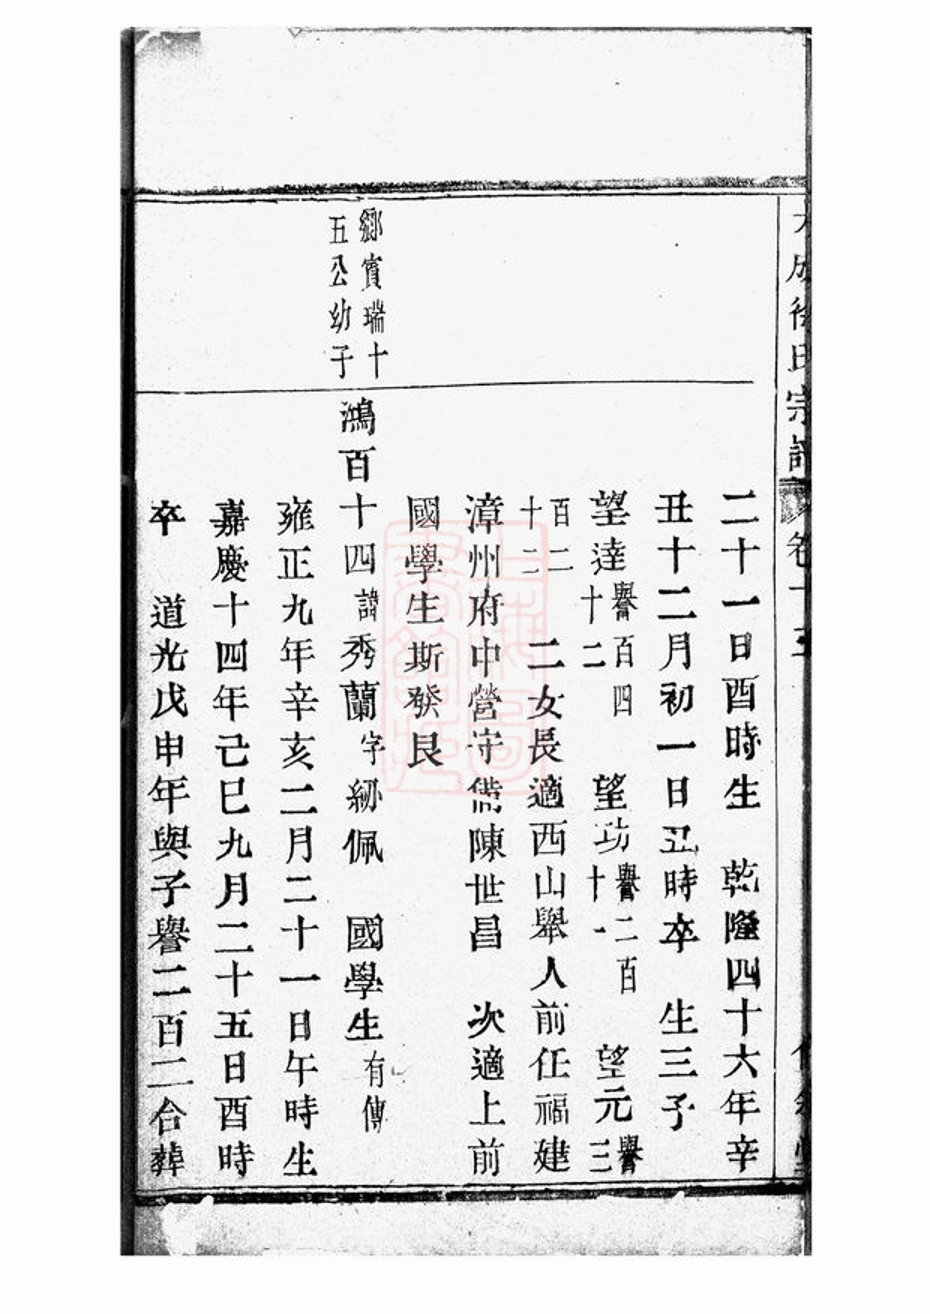 成徐氏宗譜 卷十五
二十一日酉時生 乾隆四十六年辛
丑十二月初一日丑時卒 生三子
望達譽百四十二 望功譽二百十一 望元譽三
百二十二 二女長適西山舉人前任福建
漳州府中營守備陳世昌 次適上前
國學生斯發良
鄉賓瑞十五公幼子
鴻百十四諱秀蘭字紉佩 國學生有傳
雍正九年辛亥二月二十一日午時生
嘉慶十四年己巳九月二十五日酉時
卒 道光戊申年與子譽二百二合葬